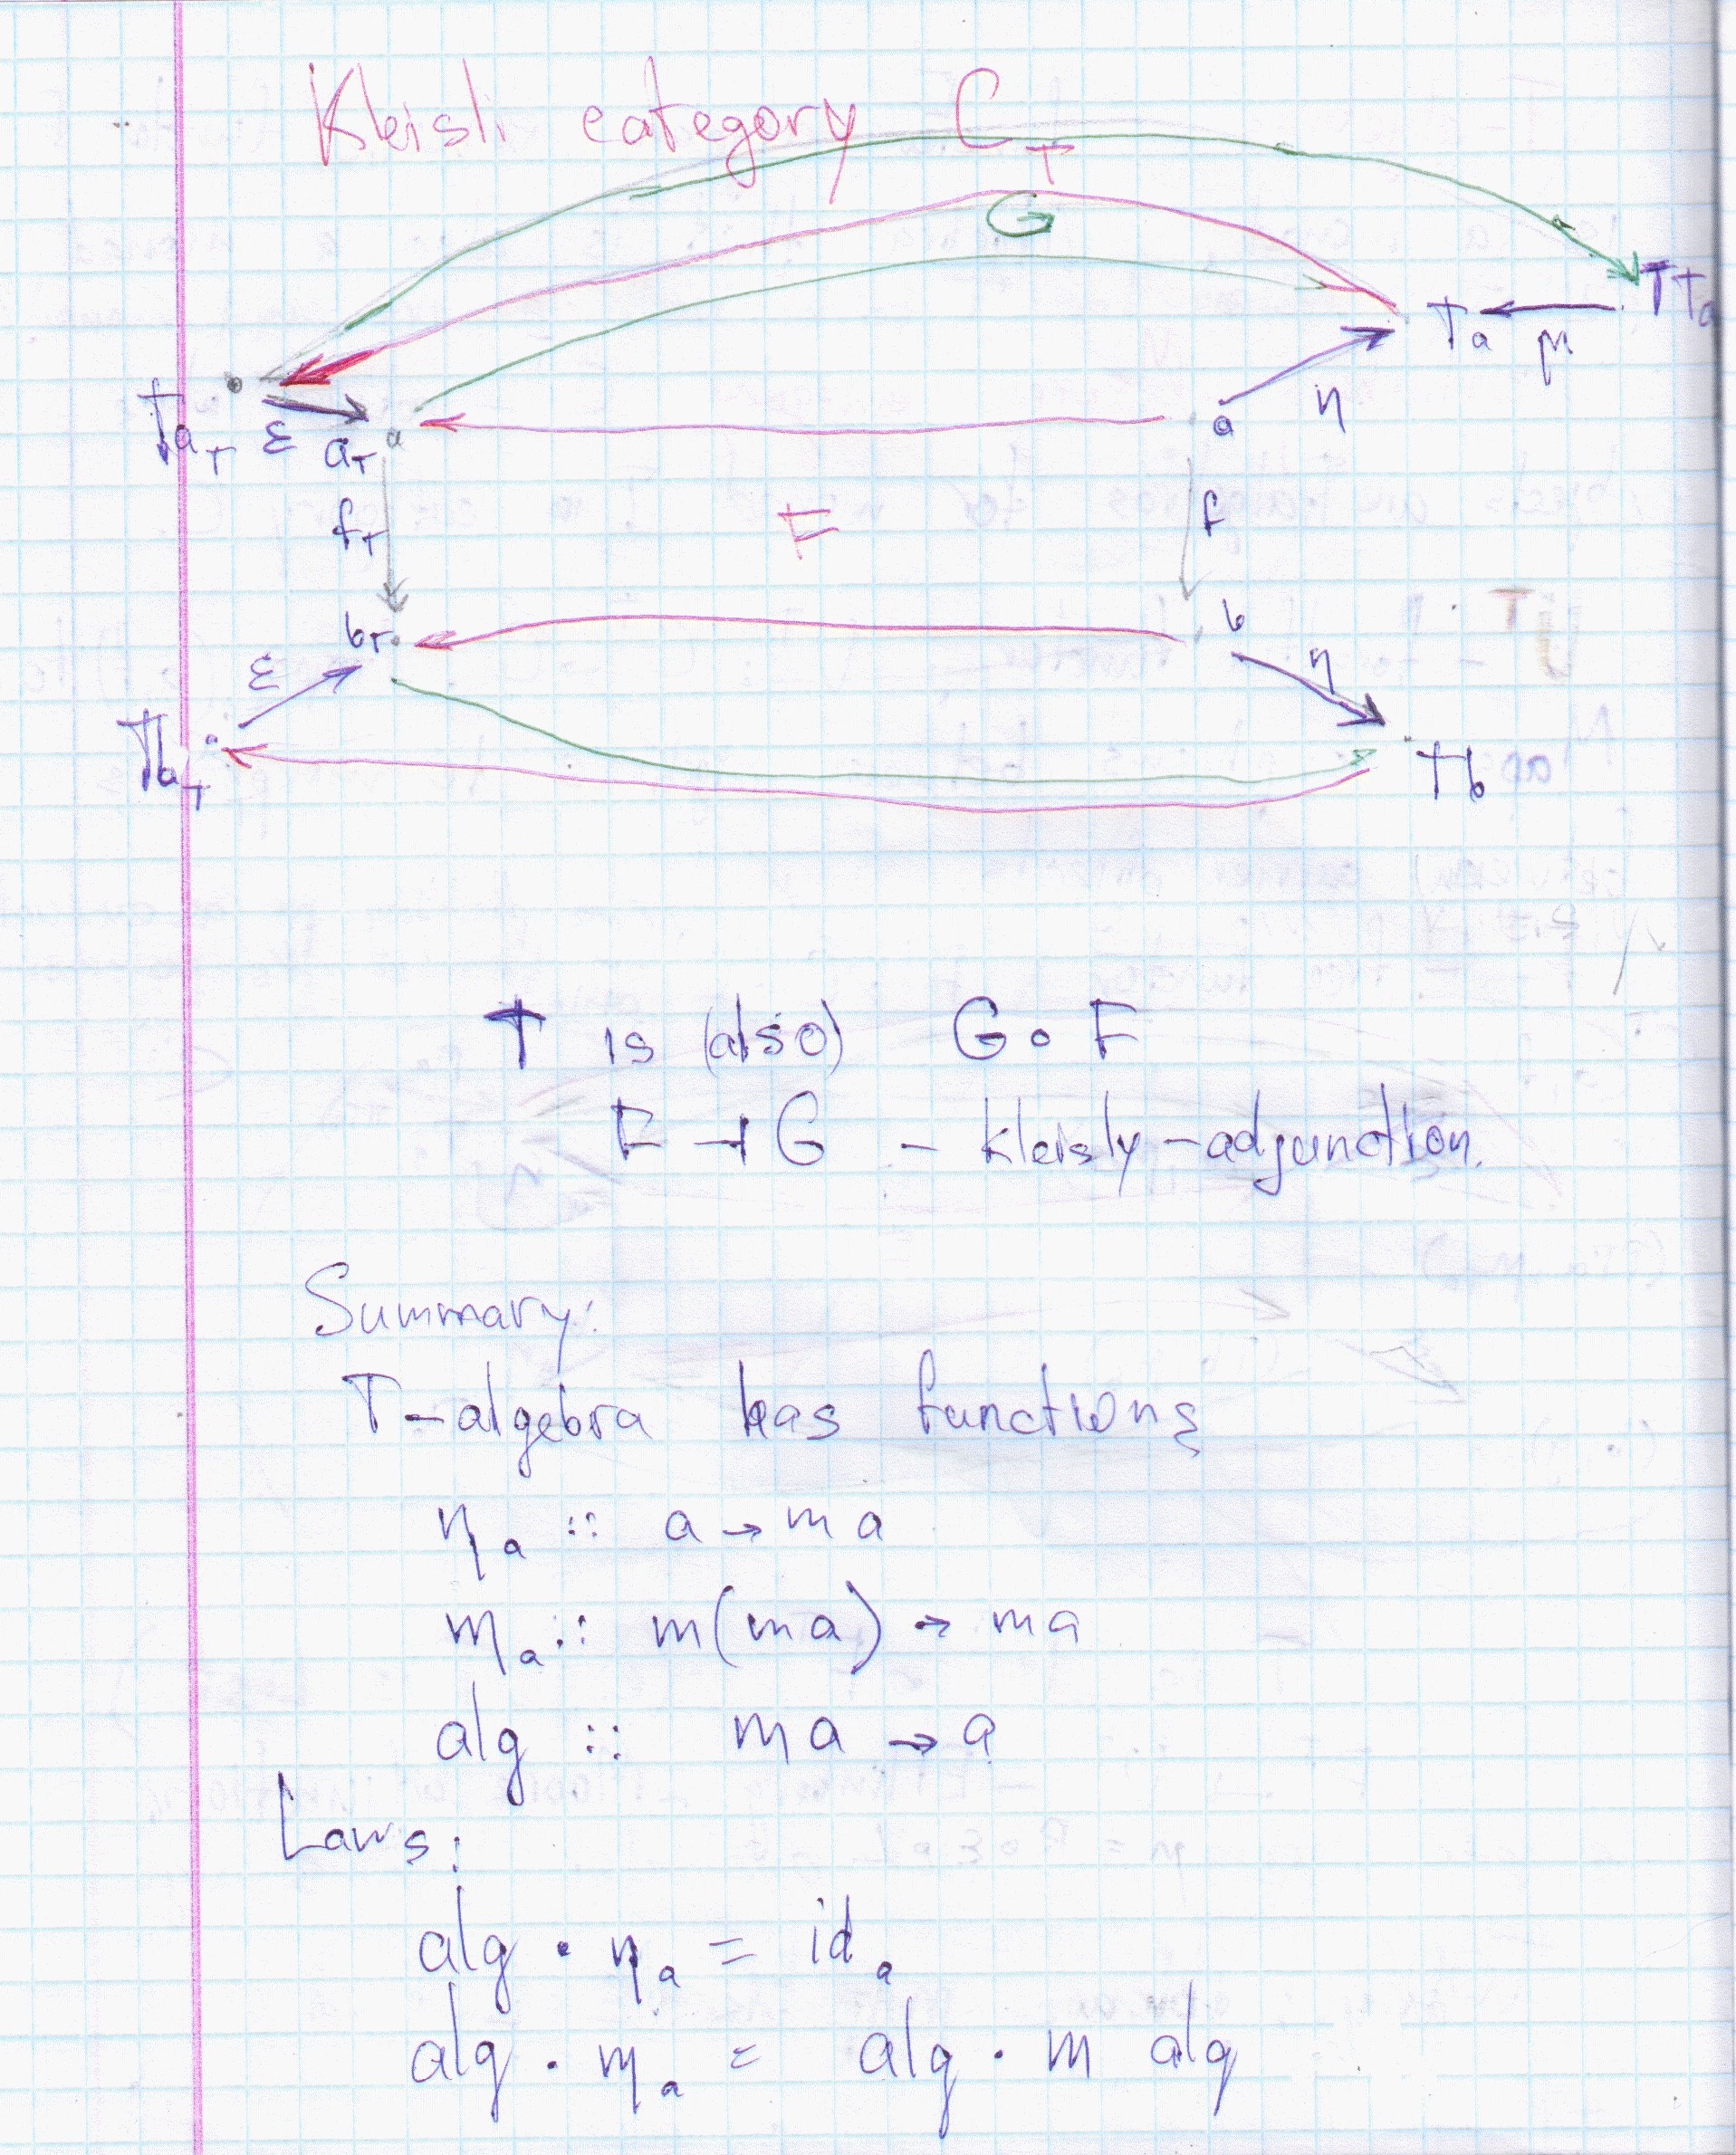 Kleisli category C_T
G
Ta_T ε a_T a a η Ta μ TTa
f_T F f
b_T b
ε η
Tb_T Tb
T is (also) G∘F
F ⊣ G - kleisly-adjunction.
Summary:
T-algebra has functions
η_a :: a → m a
μ_a :: m(m a) → m a
alg :: m a → a
Laws:
alg · η_a = id_a
alg · μ_a = alg · m alg